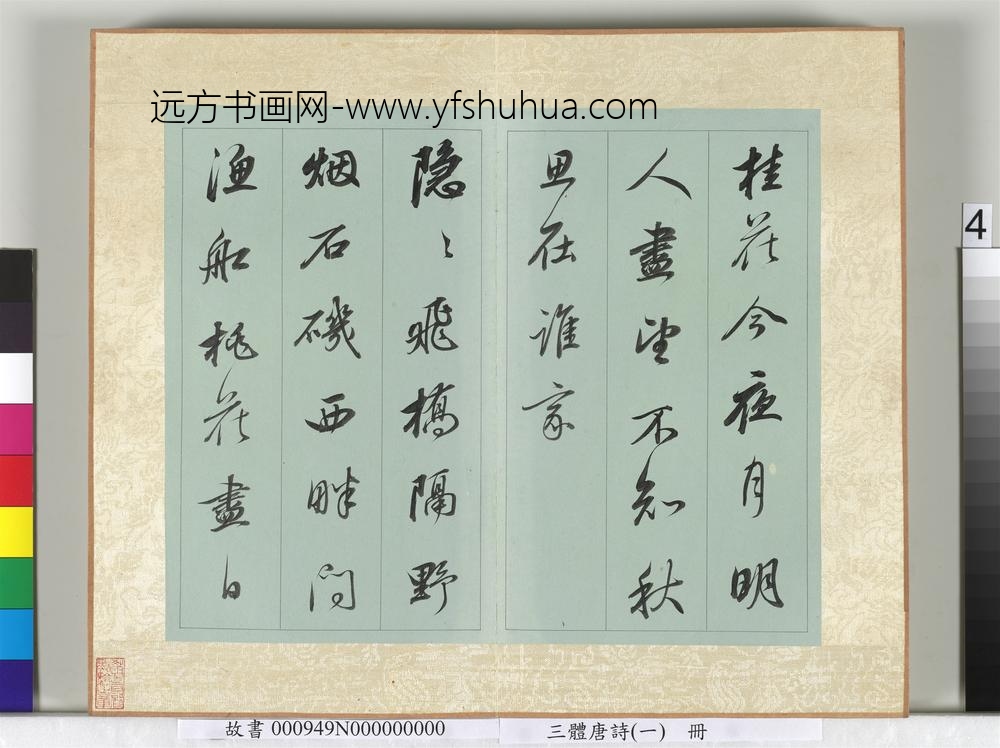 远方书画网-www.yfshuhua.com
桂花今夜月明
人盡望不知秋
思在誰家
隐〻飛橋隔野
烟石磯西畔问
漁船桃花盡日
4
故書 000949N000000000
三體唐詩(一) 冊